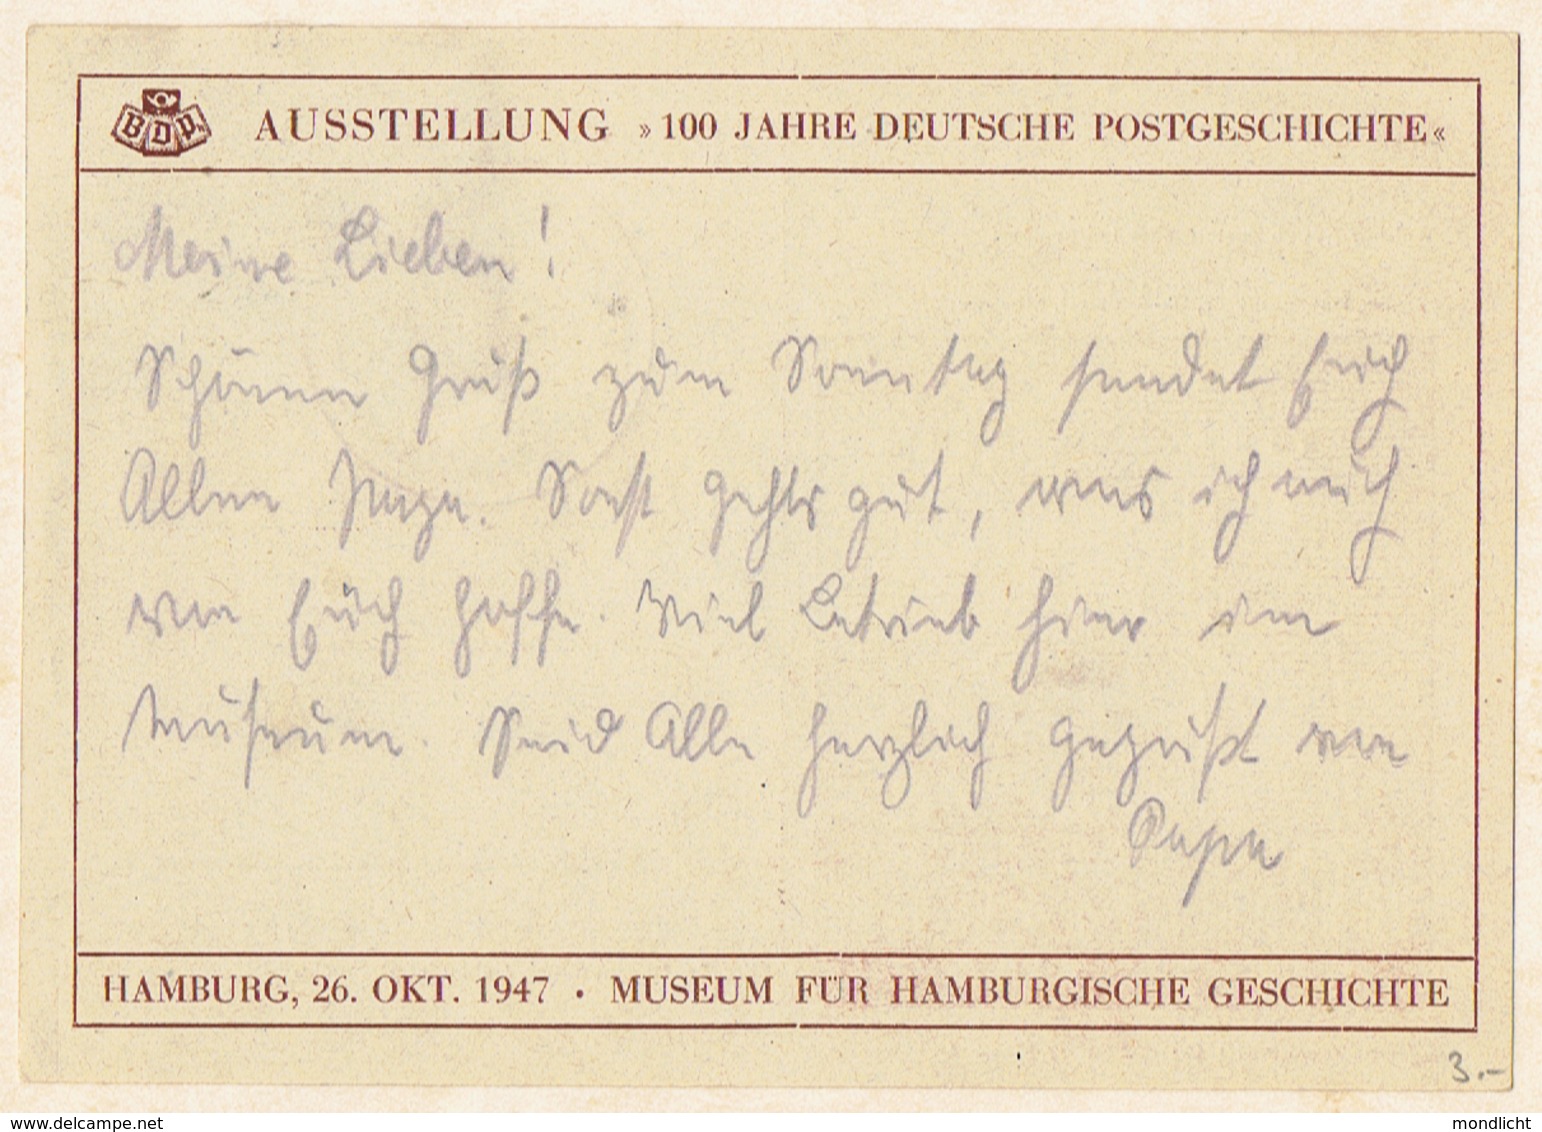 B.D.P.
AUSSTELLUNG »100 JAHRE DEUTSCHE POSTGESCHICHTE«
Meine Lieben!
Schönen Gruß zum Sonntag sendet Euch
Allen Papa. Sonst geht's gut, was ich auch
von Euch hoffe. Viel Betrieb hier im
Museum. Seid Alle herzlich gegrüßt von
Papa
HAMBURG, 26. OKT. 1947 · MUSEUM FÜR HAMBURGISCHE GESCHICHTE
3.-
delcampe.net
mondlicht